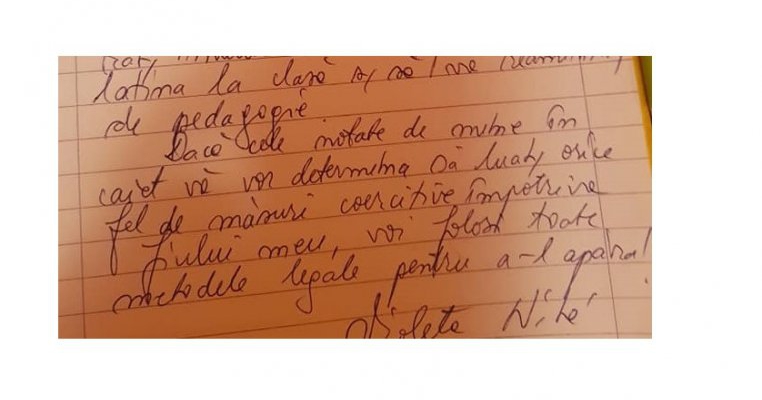 latina la clasă și să vă
de pedagogie.
Dacă cele notate de mine în
caiet vă vor determina să luați orice
fel de măsuri coercitive împotriva
fiului meu, voi folosi toate
metodele legale pentru a-l apăra!
Violeta